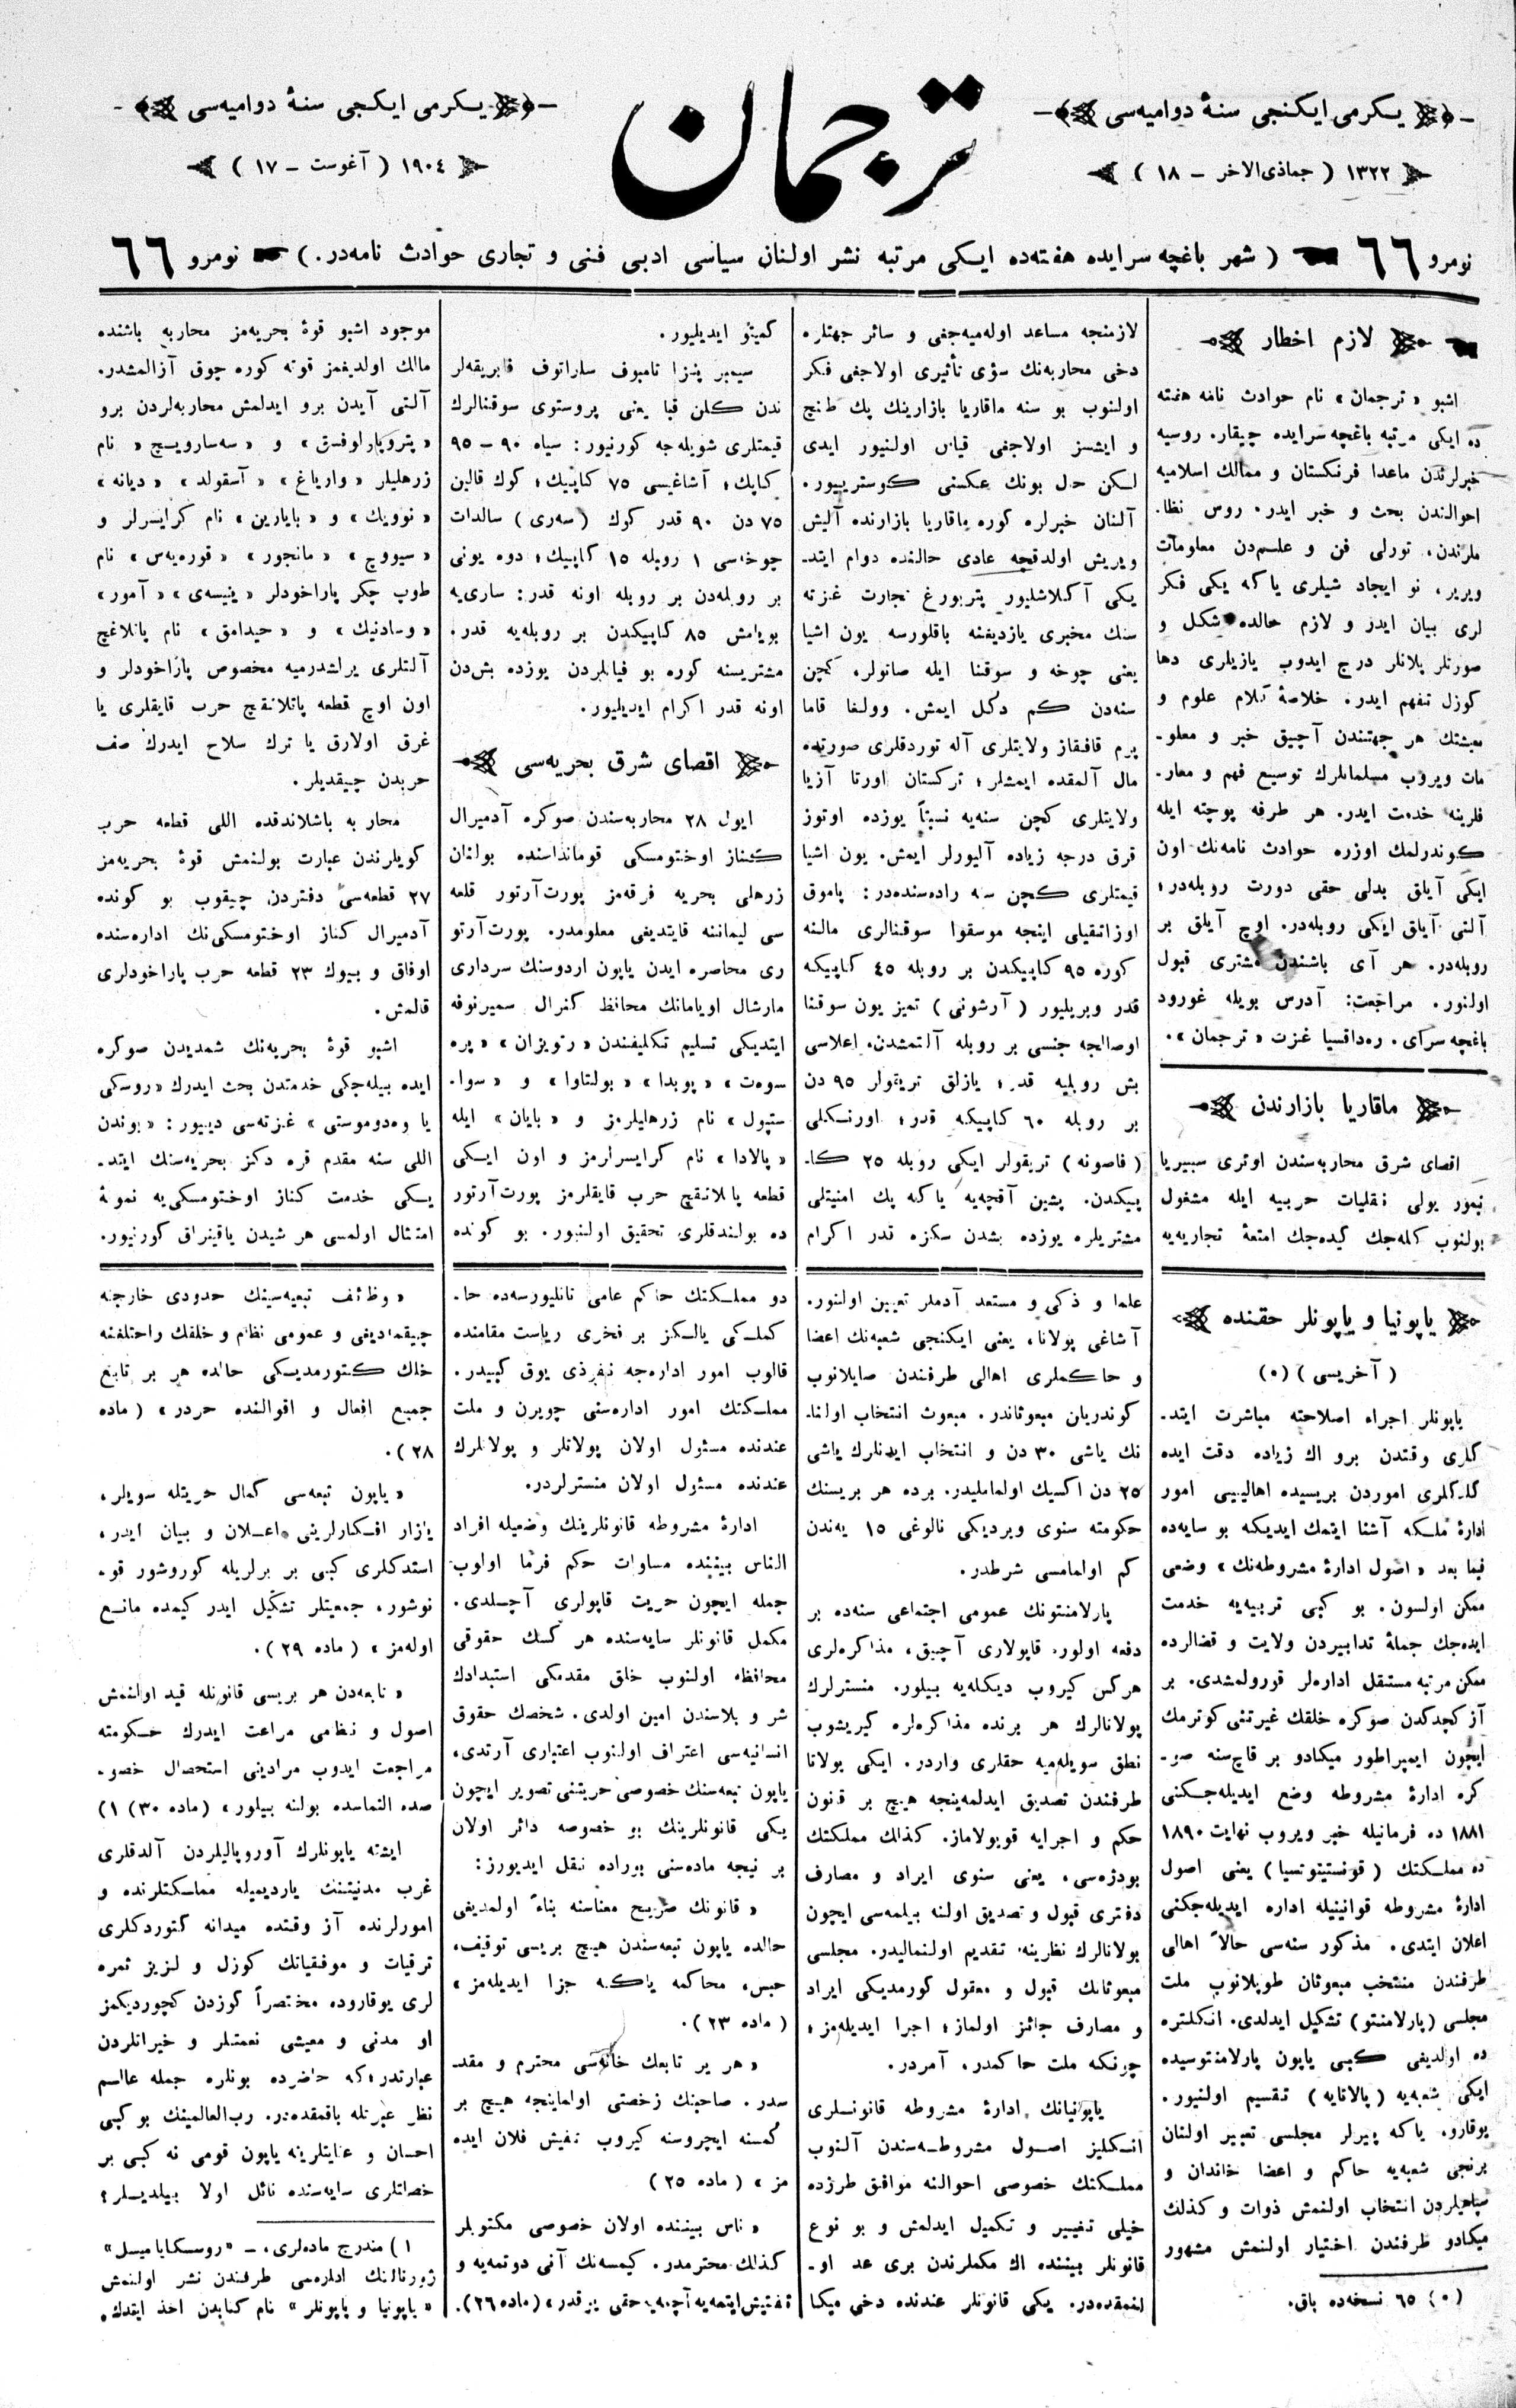 يكرمی ايكنجی سنهٔ دواميه‌سی
١٣٢٢ ( جماذی‌الاخر – ١٨ )
ترجمان
يكرمی ايكنجی سنهٔ دواميه‌سی
١٩٠٤ ( آغوست – ١٧ )
نومرو ٦٦ ( شهر باغچه سرايده هفته‌ده ايكی مرتبه نشر اولنان سياسی ادبی فنی و تجاری حوادث نامه‌در. ) نومرو ٦٦
لازم اخطار
اشبو « ترجمان » نام حوادث نامه هفته
ده ايكی مرتبه باغچه سرايده چيقار. روسيه
خبرلرندن ماعدا فرنكستان و ممالك اسلاميه
احوالندن بحث و خبر ايدر. روس نظا-
ملرندن، تورلی فن و علم‌دن معلومات
ويرير، نو ايجاد شيلری ياكه يكی فكر
لری بيان ايدر و لازم حالده شكل و
صورتلر پلانلر درج ايدوب يازيلری دها
كوزل تفهيم ايدر. خلاصهٔ كلام علوم و
معيشتك هر جهتندن آچيق خبر و معلو-
مات ويروب مسلمانلرك توسيع فهم و معار-
فلرينه خدمت ايدر. هر طرفه پوچته ايله
كوندرلمك اوزره حوادث نامه‌نك اون
ايكی آيلق بدلی حقی دورت روبله‌در؛
آلتی آيلق ايكی روبله‌در. اوچ آيلق بر
روبله‌در. هر آی باشندن مشتری قبول
اولنور. مراجعت: آدرس بويله غورود
باغچه سرای. ره‌داقسيا غزت « ترجمان ».
ماقاريا بازارندن
اقصای شرق محاربه‌سندن اوتری سيبيريا
تيمور يولی نقليات حربيه ايله مشغول
بولنوب كله‌جك كيده‌جك امتعهٔ تجاريه‌يه
لازمنجه مساعد اوله‌ميه‌جغی و سائر جهتلره
دخی محاربه‌نك سؤی تأثيری اولاجغی فكر
اولنوب بو سنه ماقاريا بازارينك پك طنج
و ايشسز اولاجغی قياس اولنيور ايدی
لكن حال بونك عكسنی كوستريیور.
آلنان خبرلره كوره ماقاريا بازارنده آليش
ويريش اولدقچه عادی حالنده دوام ايتد-
يكی آكلاشليور پتربورغ تجارت غزته
سنك مخبری يازديغنه باقلورسه يون اشيا
يعنی چوخه و سوقنا ايله صاتولر، كچن
سنه‌دن كم دكل ايمش. وولغا قاما
پرم قافقاز ولايتلری آله توردقلری صورتده
مال آلمقده ايمشلر؛ تركستان اورتا آزيا
ولايتلری كچن سنه‌يه نسبتاً يوزده اوتوز
قرق درجه زياده آليورلر ايمش. يون اشيا
قيمتلری كچن سنه راده‌سنده‌در: پاموق
اوزاتقيلی اينجه موسقوا سوقنالری مالنه
كوره ٩٥ كاپيكدن بر روبله ٤٥ كاپيكه
قدر ويريليور ( آرشونی ) تميز يون سوقنا
اوصالجه جنسی بر روبله آلتمشدن، اعلاسی
بش روبليه قدر؛ يازلق تريقولر ٩٥ دن
بر روبله ٦٠ كاپيكه قدر؛ اورنكلی
( فاصونه ) تريقولر ايكی روبله ٢٥ كا-
پيكدن. پشين آقچه‌يه ياكه پك امنيتلی
مشتريلره يوزده بشدن سكزه قدر اكرام
كميتو ايديليور.
سيمبر پنزا تامبوف ساراتوف فابريقه‌لر
ندن كلن قبا يعنی پروستوی سوقنالرك
قيمتلری شويله‌جه كورنيور: سياه ٩٠ – ٩٥
كاپك؛ آشاغيسی ٧٥ كاپيك؛ كوك قالين
٧٥ دن ٩٠ قدر كوك ( سه‌ری ) سالدات
چوخاسی ١ روبله ١٥ كاپيك؛ دوه يونی
بر روبله‌دن بر روبله اونه قدر: ساری‌يه
بويامش ٨٥ كاپيكدن بر روبله‌يه قدر.
مشتريسنه كوره بو فياتلردن يوزده بش‌دن
اونه قدر اكرام ايديليور.
اقصای شرق بحريه‌سی
ايول ٢٨ محاربه‌سندن صوكره آدميرال
كيناز اوختومسكی قوماندا‌سنده بولنان
زرهلی بحريه فرقه‌مز پورت‌آرتور قلعه
سی ليماننه قايتديغی معلومدر. پورت‌آرتو
ری محاصره ايدن ياپون اردوسنك سرداری
مارشال اويامانك محافظ كنرال سميرنوفه
ايتديكی تسليم تكليفندن « رتويزان » « پره
سوه‌ت » « پوبدا » « پولتاوا » و « سوا-
ستپول » نام زرهليلرمز و « بايان » ايله
« پالادا » نام كرايسرلرمز و اون ايكی
قطعه پاتلانقچ حرب قايقلرمز پورت‌آرتور
ده بولندقلری تحقيق اولنيور. بو كونده
موجود اشبو قوهٔ بحريه‌مز محاربه باشنده
مالك اولديغمز قوته كوره چوق آزالمشدر.
آلتی آيدن برو ايدلمش محاربه‌لردن برو
« پتروپاولوفسق » و « سه‌سارويچ » نام
زرهليلر « وارياغ » « آسقولد » « ديانه »
« نوويك » و « بايارين » نام كرايسرلر و
« سيووچ » « مانجور » « قوره‌يه‌س » نام
طوپ چكر پاراخودلر « ينيسه‌ی » « آمور »
« وسادنيك » و « حيدامق » نام پاتلاغچ
آلتلری يراشدرميه مخصوص پاراخودلر و
اون اوچ قطعه پاتلانقچ حرب قايقلری يا
غرق اولارق يا ترك سلاح ايدرك صف
حربدن چيقديلر.
محاربه باشلاندقده اللی قطعه حرب
كويلرندن عبارت بولنمش قوهٔ بحريه‌مز
٢٧ قطعه‌سی دفتردن چيقوب بو كونده
آدميرال كناز اوختومسكی‌نك اداره‌سنده
اوفاق و بيوك ٢٣ قطعه حرب پاراخودلری
قالمش.
اشبو قوهٔ بحريه‌نك شمديدن صوكره
ايده بيله‌جكی خدمتدن بحث ايدرك « روسكی
يا وه‌دوموستی » غزته‌سی دييور: « بوندن
اللی سنه مقدم قره دكز بحريه‌سنك ايتد-
يكی خدمت كناز اوختومسكی‌يه نمونهٔ
امتثال اولمسی هر شيدن ياقينراق كورنيور.
ياپونيا و ياپونلر حقنده
( آخريسی ) (٥)
ياپونلر اجراء اصلاحته مباشرت ايتد-
كلری وقتدن برو اك زياده دقت ايده
كلدكلری اموردن بريسيده اهالييی امور
ادارهٔ ملكه آشنا ايتمك ايديكه بو سايه‌ده
فيما بعد « اصول ادارهٔ مشروطه‌نك » وضعی
ممكن اولسون. بو كبی تربيه‌يه خدمت
ايده‌جك جملهٔ تدابيردن ولايت و قضالرده
ممكن مرتبه مستقل اداره‌لر قورولمشدی. بر
آز كچدكدن صوكره خلقك غيرتنی كوترمك
ايچون ايمپراطور ميكادو بر قاچ سنه صو-
كره ادارهٔ مشروطه وضع ايديله‌جكنی
١٨٨١ ده فرمانيله خبر ويروب نهايت ١٨٩٠
ده مملكتك ( قونستيتوتسيا ) يعنی اصول
ادارهٔ مشروطه قوانينيله اداره ايديله‌جكنی
اعلان ايتدی. مذكور سنه‌سی حالاً اهالی
طرفندن منتخب مبعوثان طوپلانوب ملت
مجلسی (پارلامنتو) تشكيل ايدلدی. انكلتره
ده اولديغی كبی ياپون پارلامنتوسيده
ايكی شعبه‌يه ( پالاتايه ) تقسيم اولنيور.
يوقارو، ياكه پيرلر مجلسی تعبير اولنان
برنجی شعبه‌يه حاكم و اعضا خاندان و
سپاهيلردن انتخاب اولنمش ذوات و كذلك
ميكادو طرفندن اختيار اولنمش مشهور
(٥) ٦٥ نسخه‌ده باق.
علما و ذكی و مستعد آدملر تعيين اولنور.
آشاغی پولاتا، يعنی ايكنجی شعبه‌نك اعضا
و حاكملری اهالی طرفندن صايلانوب
كوندريان مبعوثاندر. مبعوث انتخاب اولنا-
نك ياشی ٣٠ دن و انتخاب ايدنلرك ياشی
٢٥ دن اكسيك اولماملیدر. برده هر بريسنك
حكومته سنوی ويرديكی نالوغی ١٥ يه‌ندن
كم اولمامسی شرطدر.
پارلامنتونك عمومی اجتماعی سنه‌ده بر
دفعه اولور. قاپولاری آچيق، مذاكره‌لری
هركس كيروب ديكله‌يه بيلور. منسترلرك
پولاتالرك هر برنده مذاكره‌لره كيريشوب
نطق سويله‌ميه حقلری واردر. ايكی پولاتا
طرفندن تصديق ايدلمه‌ينجه هيچ بر قانون
حكم و اجرايه قويولاماز. كذالك مملكتك
بودژه‌سی، يعنی سنوی ايراد و مصارف
دفتری قبول و تصديق اولنه بيلمه‌سی ايچون
پولاتالرك نظرينه تقديم اولنماليدر. مجلسی
مبعوثانك قبول و معقول كورمديكی ايراد
و مصارف جائز اولماز؛ اجرا ايديله‌مز؛
چونكه ملت حاكمدر، آمردر.
ياپونيانك ادارهٔ مشروطه قانونلری
انكليز اصول مشروطه‌سندن آلنوب
مملكتك خصوصی احوالنه موافق طرزده
خيلی تغيير و تكميل ايدلمش و بو نوع
قانونلر بيننده اك مكملرندن بری عد او-
لنمقده‌در. يكی قانونلر عندنده دخی ميكا
دو مملكتك حاكم عامی تانليورسه‌ده حا-
كملكی يالكز بر فخری رياست مقامنده
قالوب امور اداره‌جه نفوذی يوق كبيدر.
مملكتك امور اداره‌سنی چويرن و ملت
عندنده مسئول اولان پولاتلر و پولاتلرك
عندنده مسئول اولان منسترلردر.
ادارهٔ مشروطه قانونلرينك وضعيله افراد
الناس بيننده مساوات حكم فرما اولوب
جمله ايچون حريت قاپولری آچلدی.
مكمل قانونلر سايه‌سنده هر كسك حقوقی
محافظه اولنوب خلق مقدمكی استبدادك
شر و بلاسندن امين اولدی. شخصك حقوق
انسانيه‌سی اعتراف اولنوب اعتباری آرتدی،
ياپون تبعه‌سنك خصوصی حريتنی تصوير ايچون
يكی قانونلرينك بو خصوصه دائر اولان
بر نيچه ماده‌سنی بوراده نقل ايديورز:
« قانونك صريح معناسنه بناءً اولمديغی
حالده ياپون تبعه‌سندن هيچ بريسی توقيف،
حبس، محاكمه ياكه جزا ايديله‌مز »
( ماده ٢٣ ).
« هر ير تابعك خانه‌سی محترم و مقد-
سدر. صاحبنك رخصتی اولماينجه هيچ بر
كمسنه ايچروسنه كيروب تفتيش فلان ايده
مز » ( ماده ٢٥ )
« ناس بيننده اولان خصوصی مكتوبلر
كذالك محترمدر. كيمسه‌نك آنی دوتمه‌يه و
تفتيش ايتمه‌يه آچمه‌يه حقی يوقدر » (ماده ٢٦).
« وظائف تبعيه‌سينك حدودی خارجنه
چيقمديغی و عمومی نظام و خلقك راحتلغنه
خلك كتورمديكی حالده هر بر تابع
جميع افعال و اقوالنده حردر » ( ماده
٢٨ ).
« ياپون تبعه‌سی كمال حريتله سويلر،
يازار افكارلرينی اعلان و بيان ايدر،
استدكلری كبی بر برلريله كوروشور قو-
نوشور، جمعيتلر تشكيل ايدر كيمده مانع
اوله‌مز » ( ماده ٢٩ ).
« تابعه‌دن هر بريسی قانونله قيد اولنمش
اصول و نظامی مراعت ايدرك حكومته
مراجعت ايدوب مرادينی استحصال خصو-
صده التماسده بولنه بيلور » (ماده ٣٠) (١
ايشته ياپونلرك آوروپاليلردن آلدقلری
غرب مدنيتنك يارديميله مملكتلرنده و
امورلرنده آز وقتده ميدانه كتوردكلری
ترقيات و موفقياتك كوزل و لزيز ثمره
لری يوقاروده مختصراً كوزدن كچورديكمز
او مدنی و معيشی نعمتلر و خيراتلردن
عبارتدر؛ كه حاضرده بونلره جمله عالم
نظر عبرتله باقمقده‌در. رب‌العالمينك بو كبی
احسان و عنايتلرينه ياپون قومی نه كبی بر
خصائلری سايه‌سنده نائل اولا بيلديلر؟
١ ) مندرج ماده‌لری، – « روسكايا ميسل »
ژورنالنك اداره‌سی طرفندن نشر اولنمش
« ياپونيا و ياپونلر » نام كتابدن اخذ ايتدك.